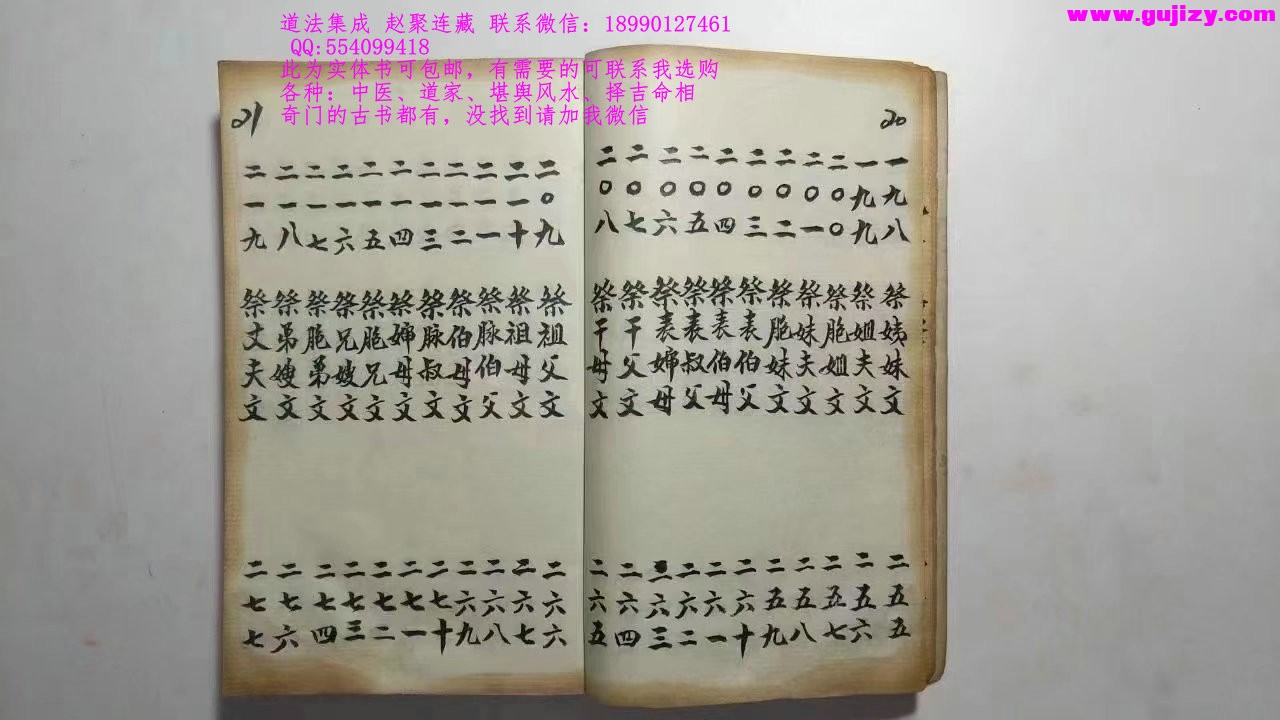 道法集成 赵聚连藏 联系微信：18990127461
QQ:554099418
此为实体书可包邮，有需要的可联系我选购
各种：中医、道家、堪舆风水、择吉命相
奇门的古书都有，没找到请加我微信
www.gujizy.com
20
一九八 祭姨妹文 二五五
一九九 祭姐夫文 二五六
二〇〇 祭胞姐文 二五七
二〇一 祭妹夫文 二五八
二〇二 祭胞妹文 二五九
二〇三 祭表伯父 二六十
二〇四 祭表伯母 二六一
二〇五 祭表叔父 二六二
二〇六 祭表婶母 二六三
二〇七 祭干父文 二六四
二〇八 祭干母文 二六五
21
二〇九 祭祖父文 二六六
二一十 祭祖母文 二六七
二一一 祭脉伯父 二六八
二一二 祭伯母文 二六九
二一三 祭脉叔文 二七十
二一四 祭婶母文 二七一
二一五 祭胞兄文 二七二
二一六 祭兄嫂文 二七三
二一七 祭胞弟文 二七四
二一八 祭弟嫂文 二七六
二一九 祭丈夫文 二七七